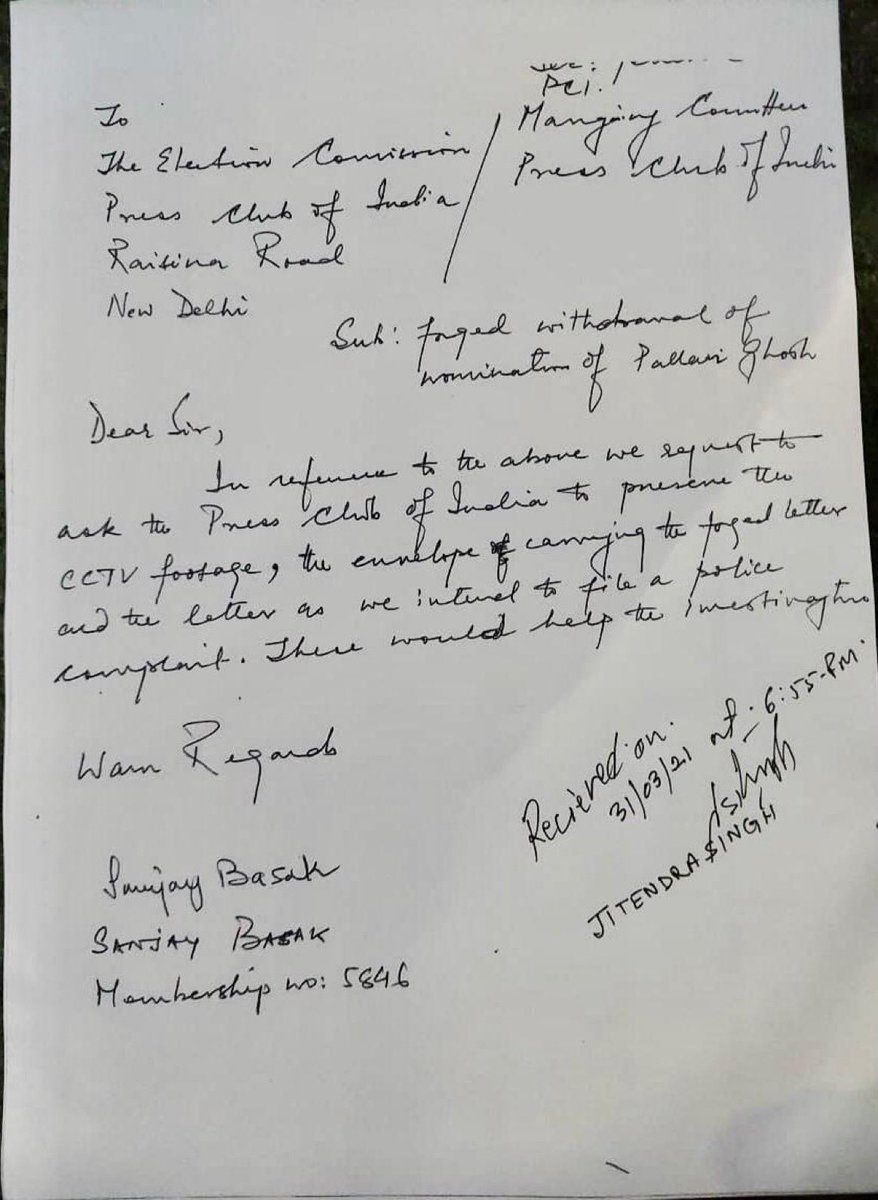 To
The Election Comission
Press Club of India
Raisina Road
New Delhi
PCI.
Manging Committee
Press Club of India
Sub: forged withdrawal of
nomination of Pallavi Ghosh
Dear Sir,
In reference to the above we request to
ask the Press Club of India to preserve the
CCTV footage, the envelope carrying the forged letter
and the letter as we intend to file a police
complaint. These would help the investingation
Warm Regards
Sanjay Basak
SANJAY BASAK
Membership no: 5846
Recieved on.
31/03/21 at 6:55-PM.
JITENDRA SINGH